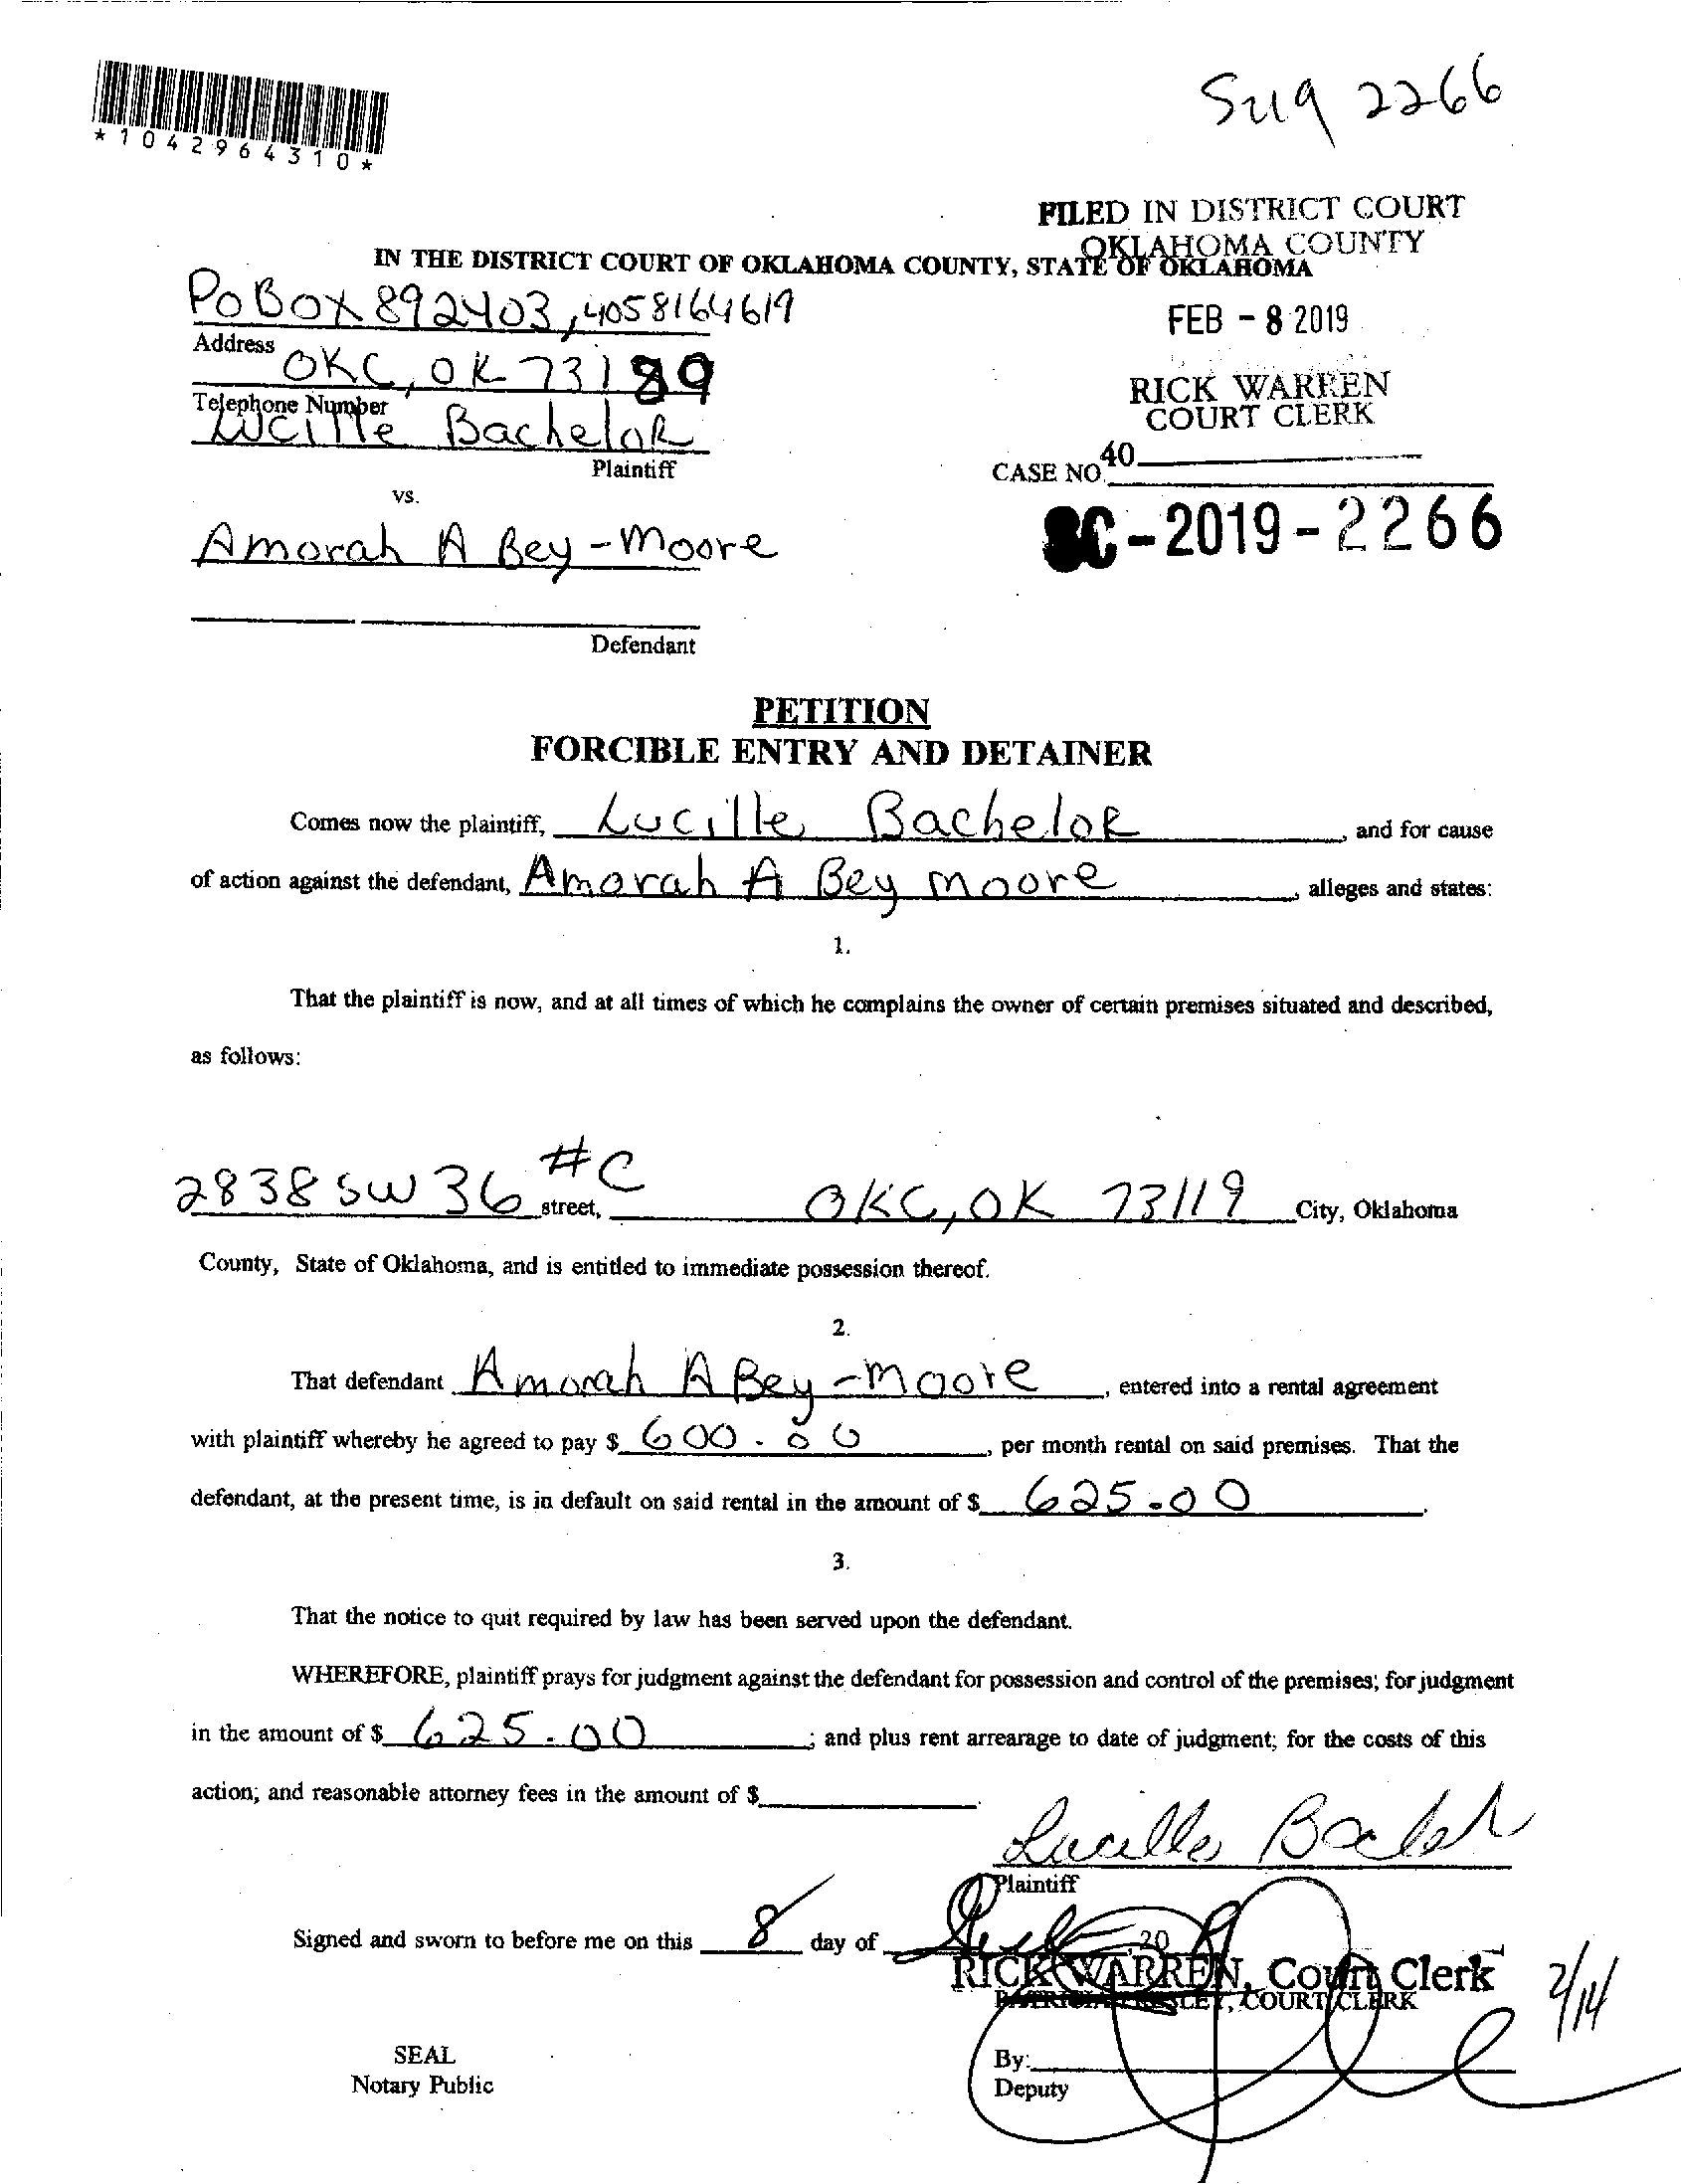 *1042964310*
FILED IN DISTRICT COURT
OKLAHOMA COUNTY
IN THE DISTRICT COURT OF OKLAHOMA COUNTY, STATE OF OKLAHOMA
PO BOX 892403, 4058164619
Address
FEB - 8 2019
OKC, OK 73189
Telephone Number
RICK WARREN
COURT CLERK
Lucille Bachelor
Plaintiff
40
CASE NO.
vs.
SC-2019-2266
Amorah A Bey-Moore
Defendant
PETITION
FORCIBLE ENTRY AND DETAINER
Comes now the plaintiff, Lucille Bachelor, and for cause
of action against the defendant, Amorah A Bey Moore, alleges and states:
1.
That the plaintiff is now, and at all times of which he complains the owner of certain premises situated and described,
as follows:
2838 SW 36 #C street, OKC, OK 73119 City, Oklahoma
County, State of Oklahoma, and is entitled to immediate possession thereof.
2.
That defendant Amorah A Bey-Moore, entered into a rental agreement
with plaintiff whereby he agreed to pay $ 600.00, per month rental on said premises. That the
defendant, at the present time, is in default on said rental in the amount of $ 625.00.
3.
That the notice to quit required by law has been served upon the defendant.
WHEREFORE, plaintiff prays for judgment against the defendant for possession and control of the premises; for judgment
in the amount of $ 625.00; and plus rent arrearage to date of judgment; for the costs of this
action; and reasonable attorney fees in the amount of $
Lucille
Plaintiff
Signed and sworn to before me on this 8 day of , 20
RICK WARREN, Court Clerk
COURT CLERK
2/14
SEAL
By:
Notary Public
Deputy
2266